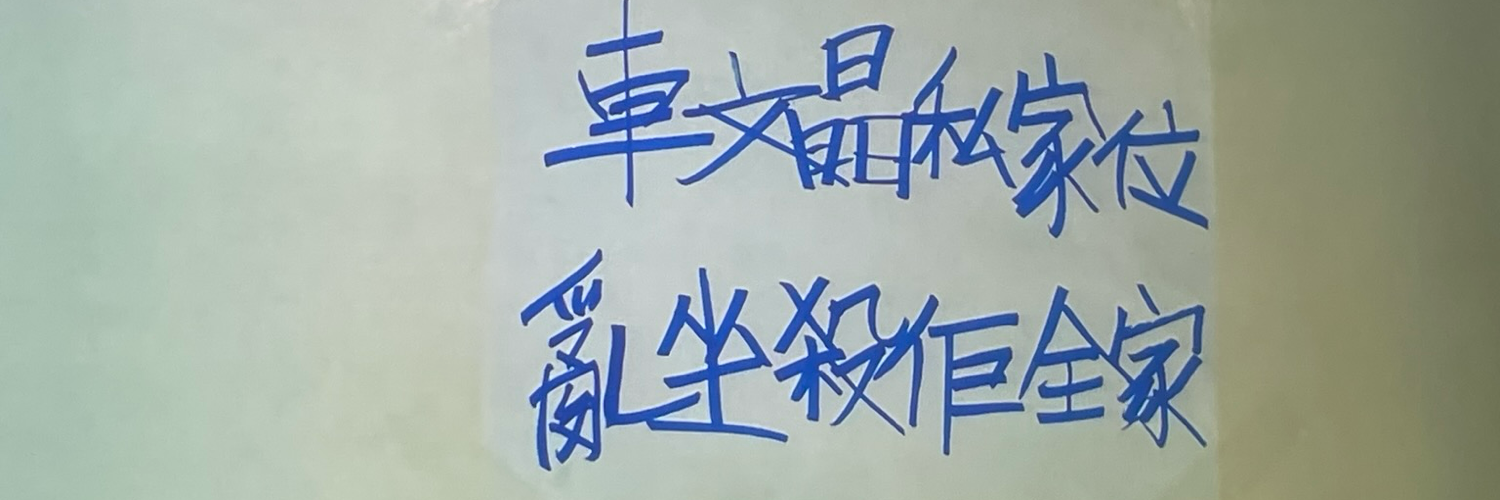 車文晶私家位
亂坐殺佢全家